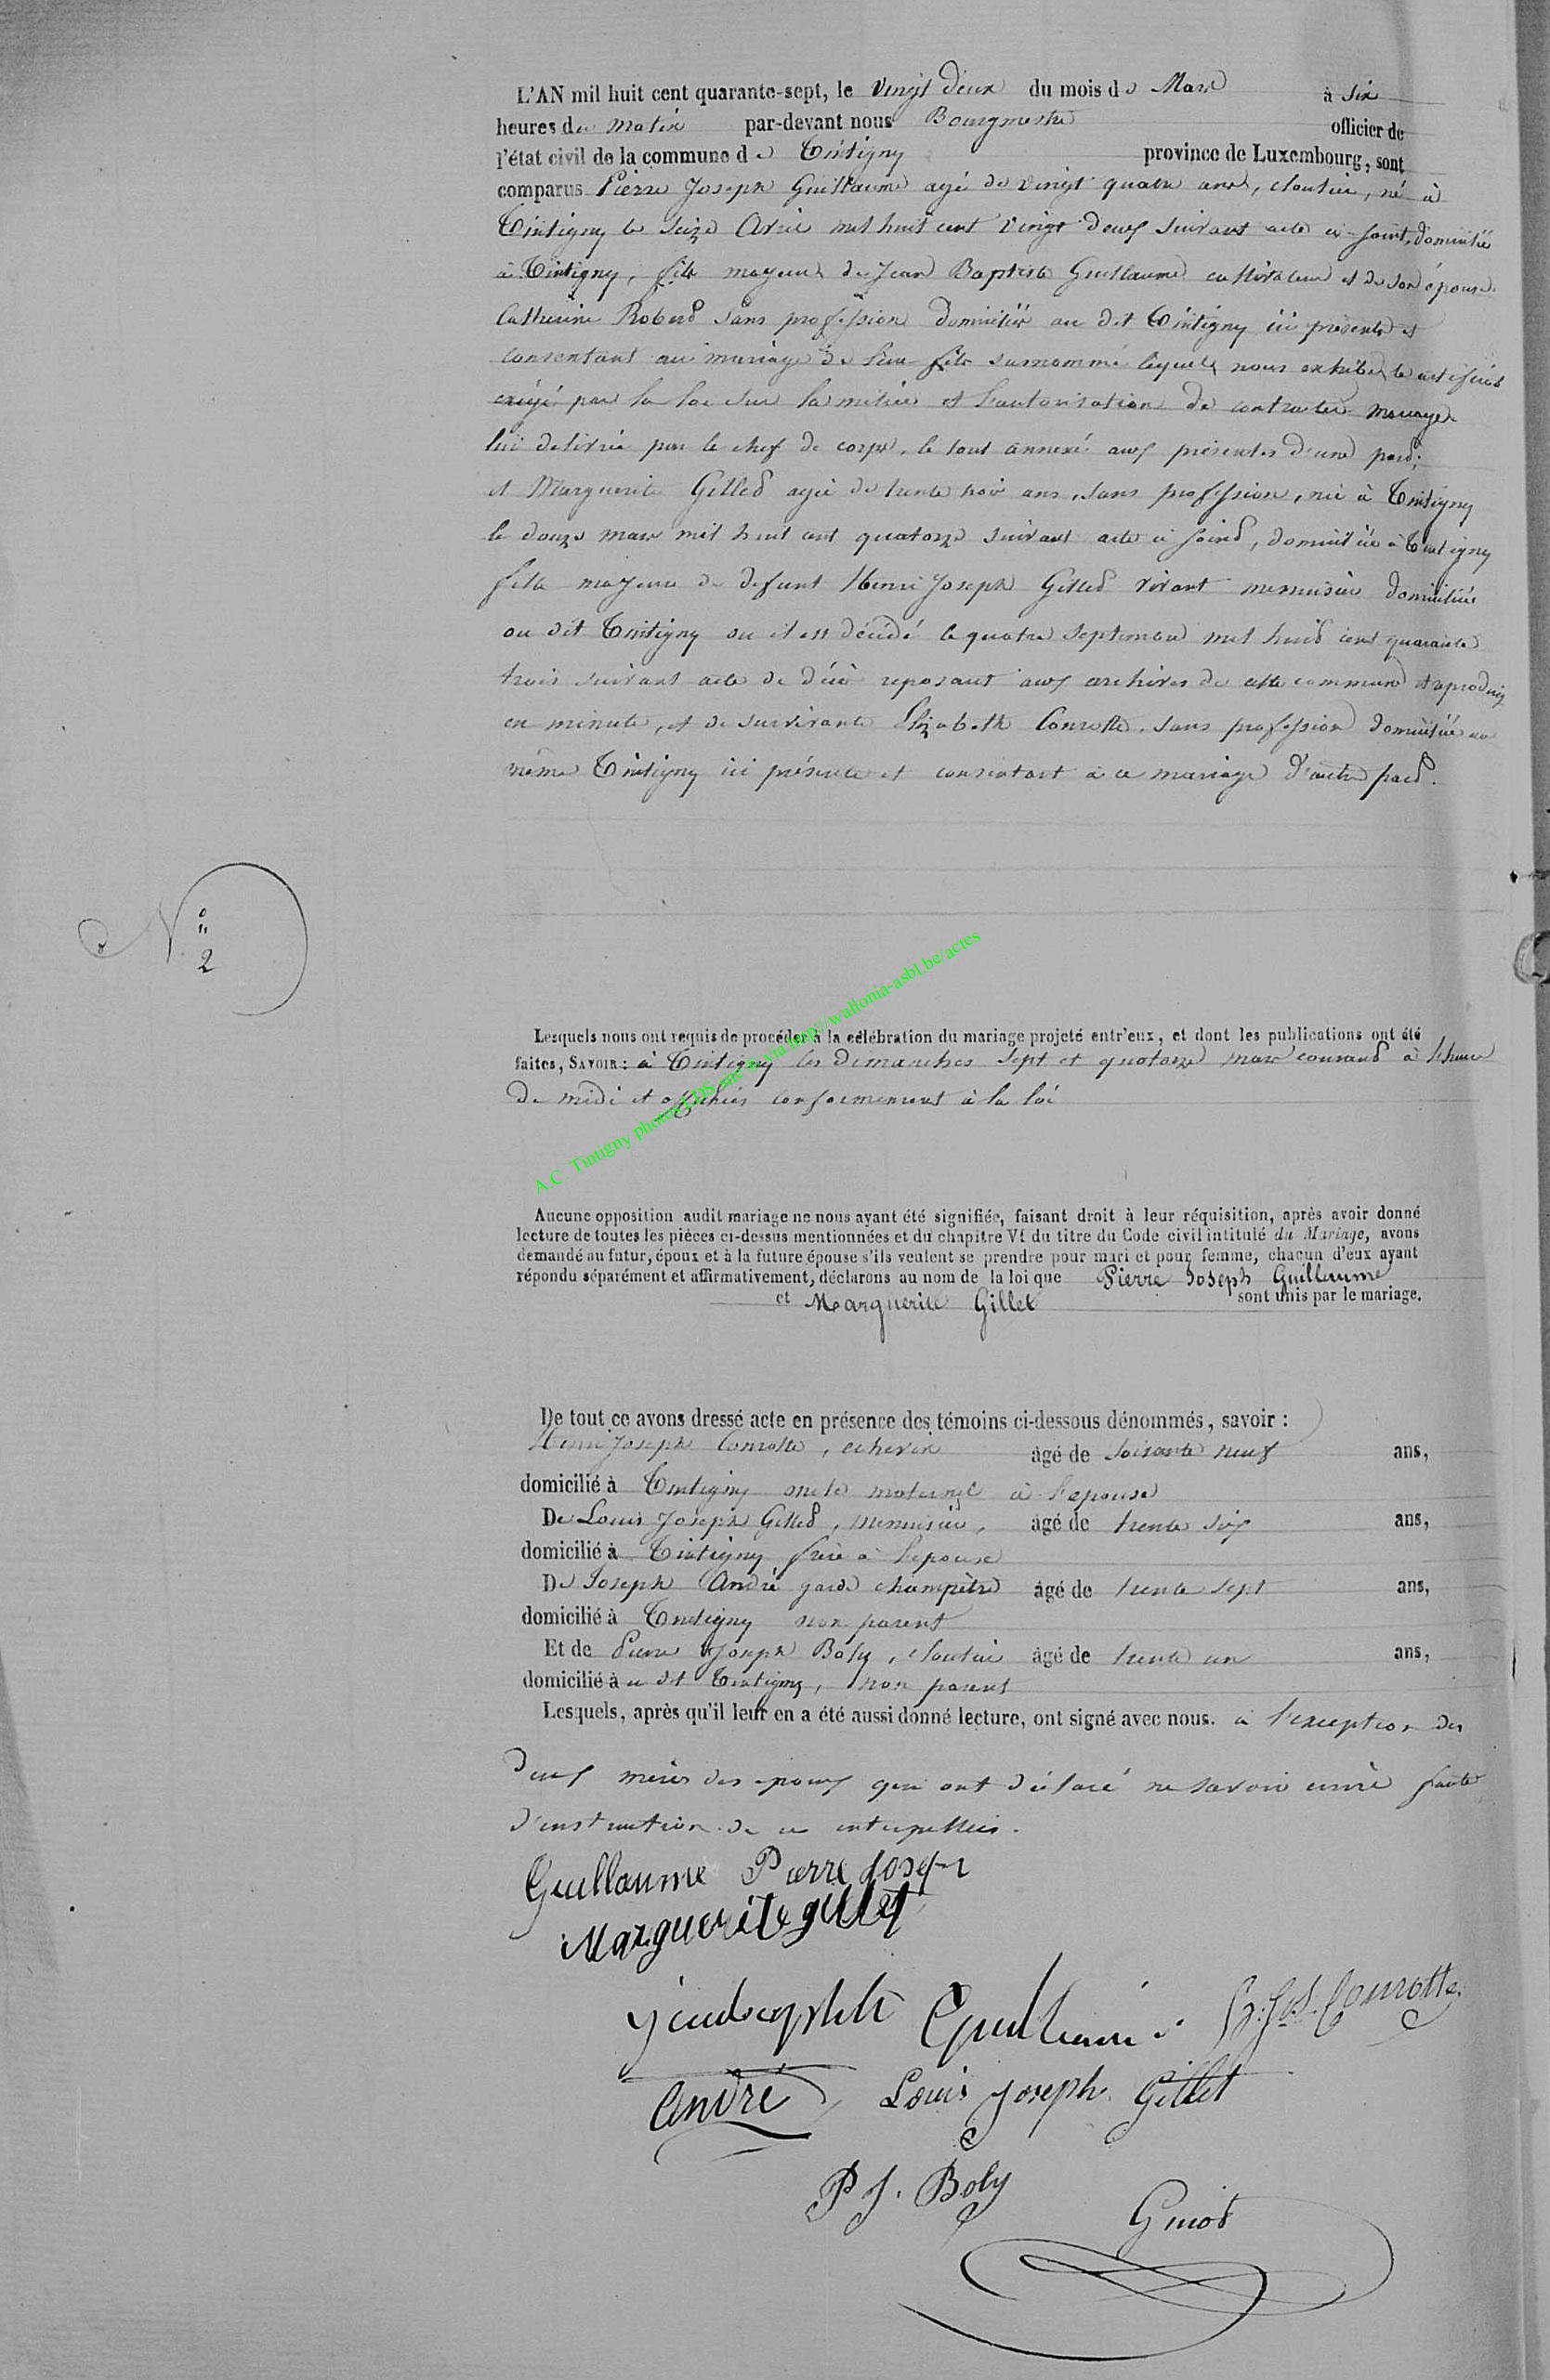 L'AN mil huit cent quarante-sept, le vingt deux du mois de Mars à six
heures du matin par-devant nous Bourgmestre officier de
l'état civil de la commune de Tintigny province de Luxembourg, sont
comparus Pierre Joseph Guillaume agé de vingt quatre ans, cloutier, né à
Tintigny le seize Avril mil huit cent vingt deux suivant acte ci-joint, domicilié
à Tintigny, fils majeur de Jean Baptiste Guillaume cultivateur et de son épouse
Catherine Robert sans profession domiciliés au dit Tintigny ici présents et
consentant au mariage de leur fils surnommé lequel nous exhibe le certificat
exigé par la loi sur la milice et l'autorisation de contracter mariage
lui délivrée par le chef de corps, le tout annexé aux présentes d'une part;
et Marguerite Gillet agée de trente trois ans, sans profession, née à Tintigny
le douze mars mil huit cent quatorze suivant acte ci joint, domiciliée à Tintigny
fille majeure de defunt Henri Joseph Gillet vivant menuisier domicilié
au dit Tintigny ou il est décédé le quatre septembre mil huit cent quarante
trois suivant acte de décè reposant aux archives de cette commune et reproduit
en minute, et de survivante Elizabeth Conrotte, sans profession domiciliée au
même Tintigny ici présente et consentant à ce mariage d'autre part.
N.º
"
2
Lesquels nous ont requis de procéder à la célébration du mariage projeté entr'eux, et dont les publications ont été
faites, SAVOIR: à Tintigny les dimanches sept et quatorze mars courant à l'heure
de midi et affichées conformément à la loi
A.C. Tintigny photos via http://wallonia-asbl.be/actes
Aucune opposition audit mariage ne nous ayant été signifiée, faisant droit à leur réquisition, après avoir donné
lecture de toutes les pièces ci-dessus mentionnées et du chapitre VI du titre du Code civil intitulé du Mariage, avons
demandé au futur, époux et à la future épouse s'ils veulent se prendre pour mari et pour femme, chacun d'eux ayant
répondu séparément et affirmativement, déclarons au nom de la loi que Pierre Joseph Guillaume
et Marguerite Gillet sont unis par le mariage.
De tout ce avons dressé acte en présence des témoins ci-dessous dénommés, savoir :
Henri Joseph Conrotte, echevin âgé de soixante neuf ans,
domicilié à Tintigny oncle maternel à l'epouse
De Louis Joseph Gillet, menuisier, âgé de trente six ans,
domicilié à Tintigny frère à l'epouse
De Joseph André garde champêtre âgé de trente sept ans,
domicilié à Tintigny non parent
Et de Pierre Joseph Boly, cloutier âgé de trente un ans,
domicilié à u dit Tintigny, non parent
Lesquels, après qu'il leur en a été aussi donné lecture, ont signé avec nous. à l'exception des
deux mères des epoux qui ont déclaré ne savoir ecrire faute
d'instruction de ce interpellées.
Guillaume Pierre Joseph
Marguerite gillet
jeanbaptiste Guillaume H. Jos. Conrotte
André Louis Joseph Gillet
P J. Boly
Guiot